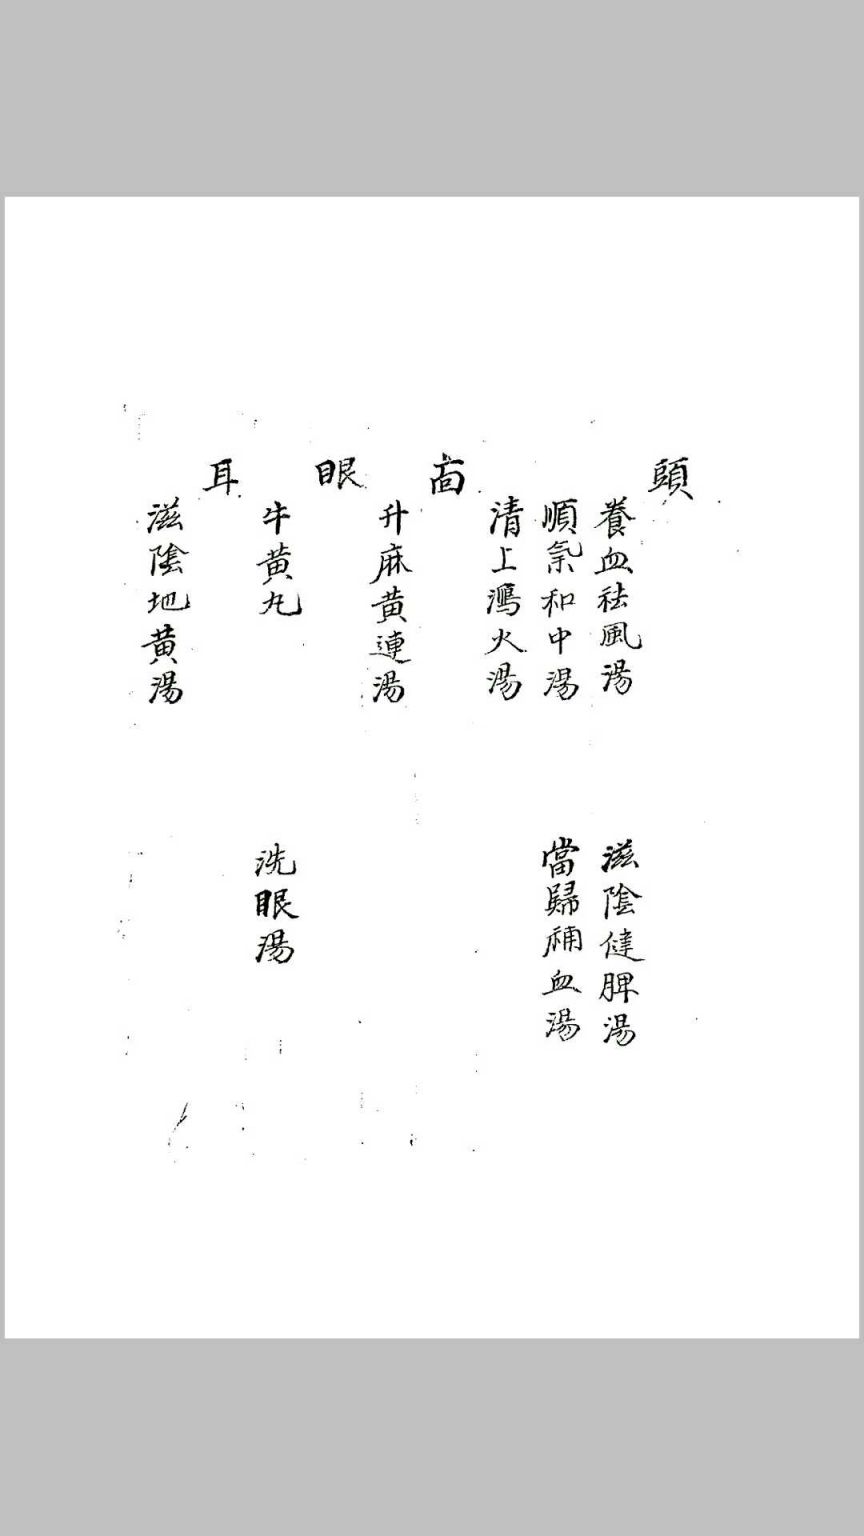 頭
養血祛風湯
滋陰健脾湯
順氣和中湯
當歸補血湯
清上瀉火湯
面
升麻黃連湯
眼
牛黃丸
洗眼湯
耳
滋陰地黃湯